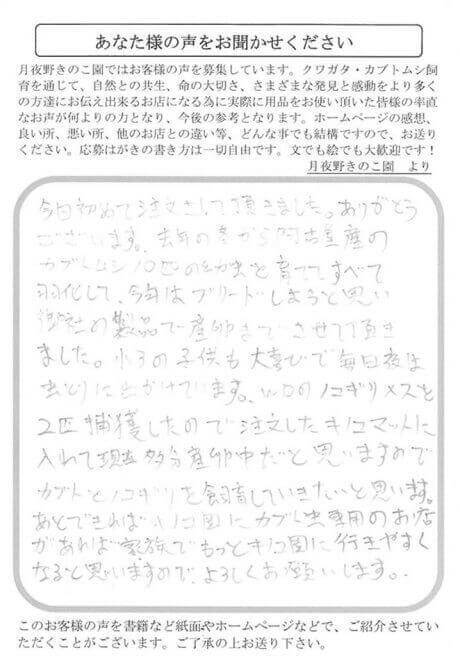 あなた様の声をお聞かせください
月夜野きのこ園ではお客様の声を募集しています。クワガタ・カブトムシ飼
育を通じて、自然との共生、命の大切さ、さまざまな発見と感動をより多く
の方達にお伝え出来るお店になる為に実際に用品をお使い頂いた皆様の率直
なお声が何よりの力となり、今後の参考となります。ホームページの感想、
良い所、悪い所、他のお店との違い等、どんな事でも結構ですので、お送り
ください。応募はがきの書き方は一切自由です。文でも絵でも大歓迎です！
月夜野きのこ園　より
今回初めて注文させて頂きました。ありがとう
ございます。去年の冬から阿古屋産の
カブトムシ10匹の幼虫を育てて、すべて
羽化して、今年はブリードしようと思い
御社の製品で産卵までさせて頂き
ました。小3の子供も大喜びで毎日夜は
虫とりに出かけています。WDのノコギリメスを
2匹捕獲したので注文したキノコマットに
入れて現在多分産卵中だと思いますので
カブトとノコギリを飼育していきたいと思います。
あとできればキノコ園にカブト虫専用のお店
があれば家族でもっとキノコ園に行きやすく
なると思いますので、よろしくお願いします。
このお客様の声を書籍など紙面やホームページなどで、ご紹介させてい
ただくことがございます。ご了承の上お送り下さい。